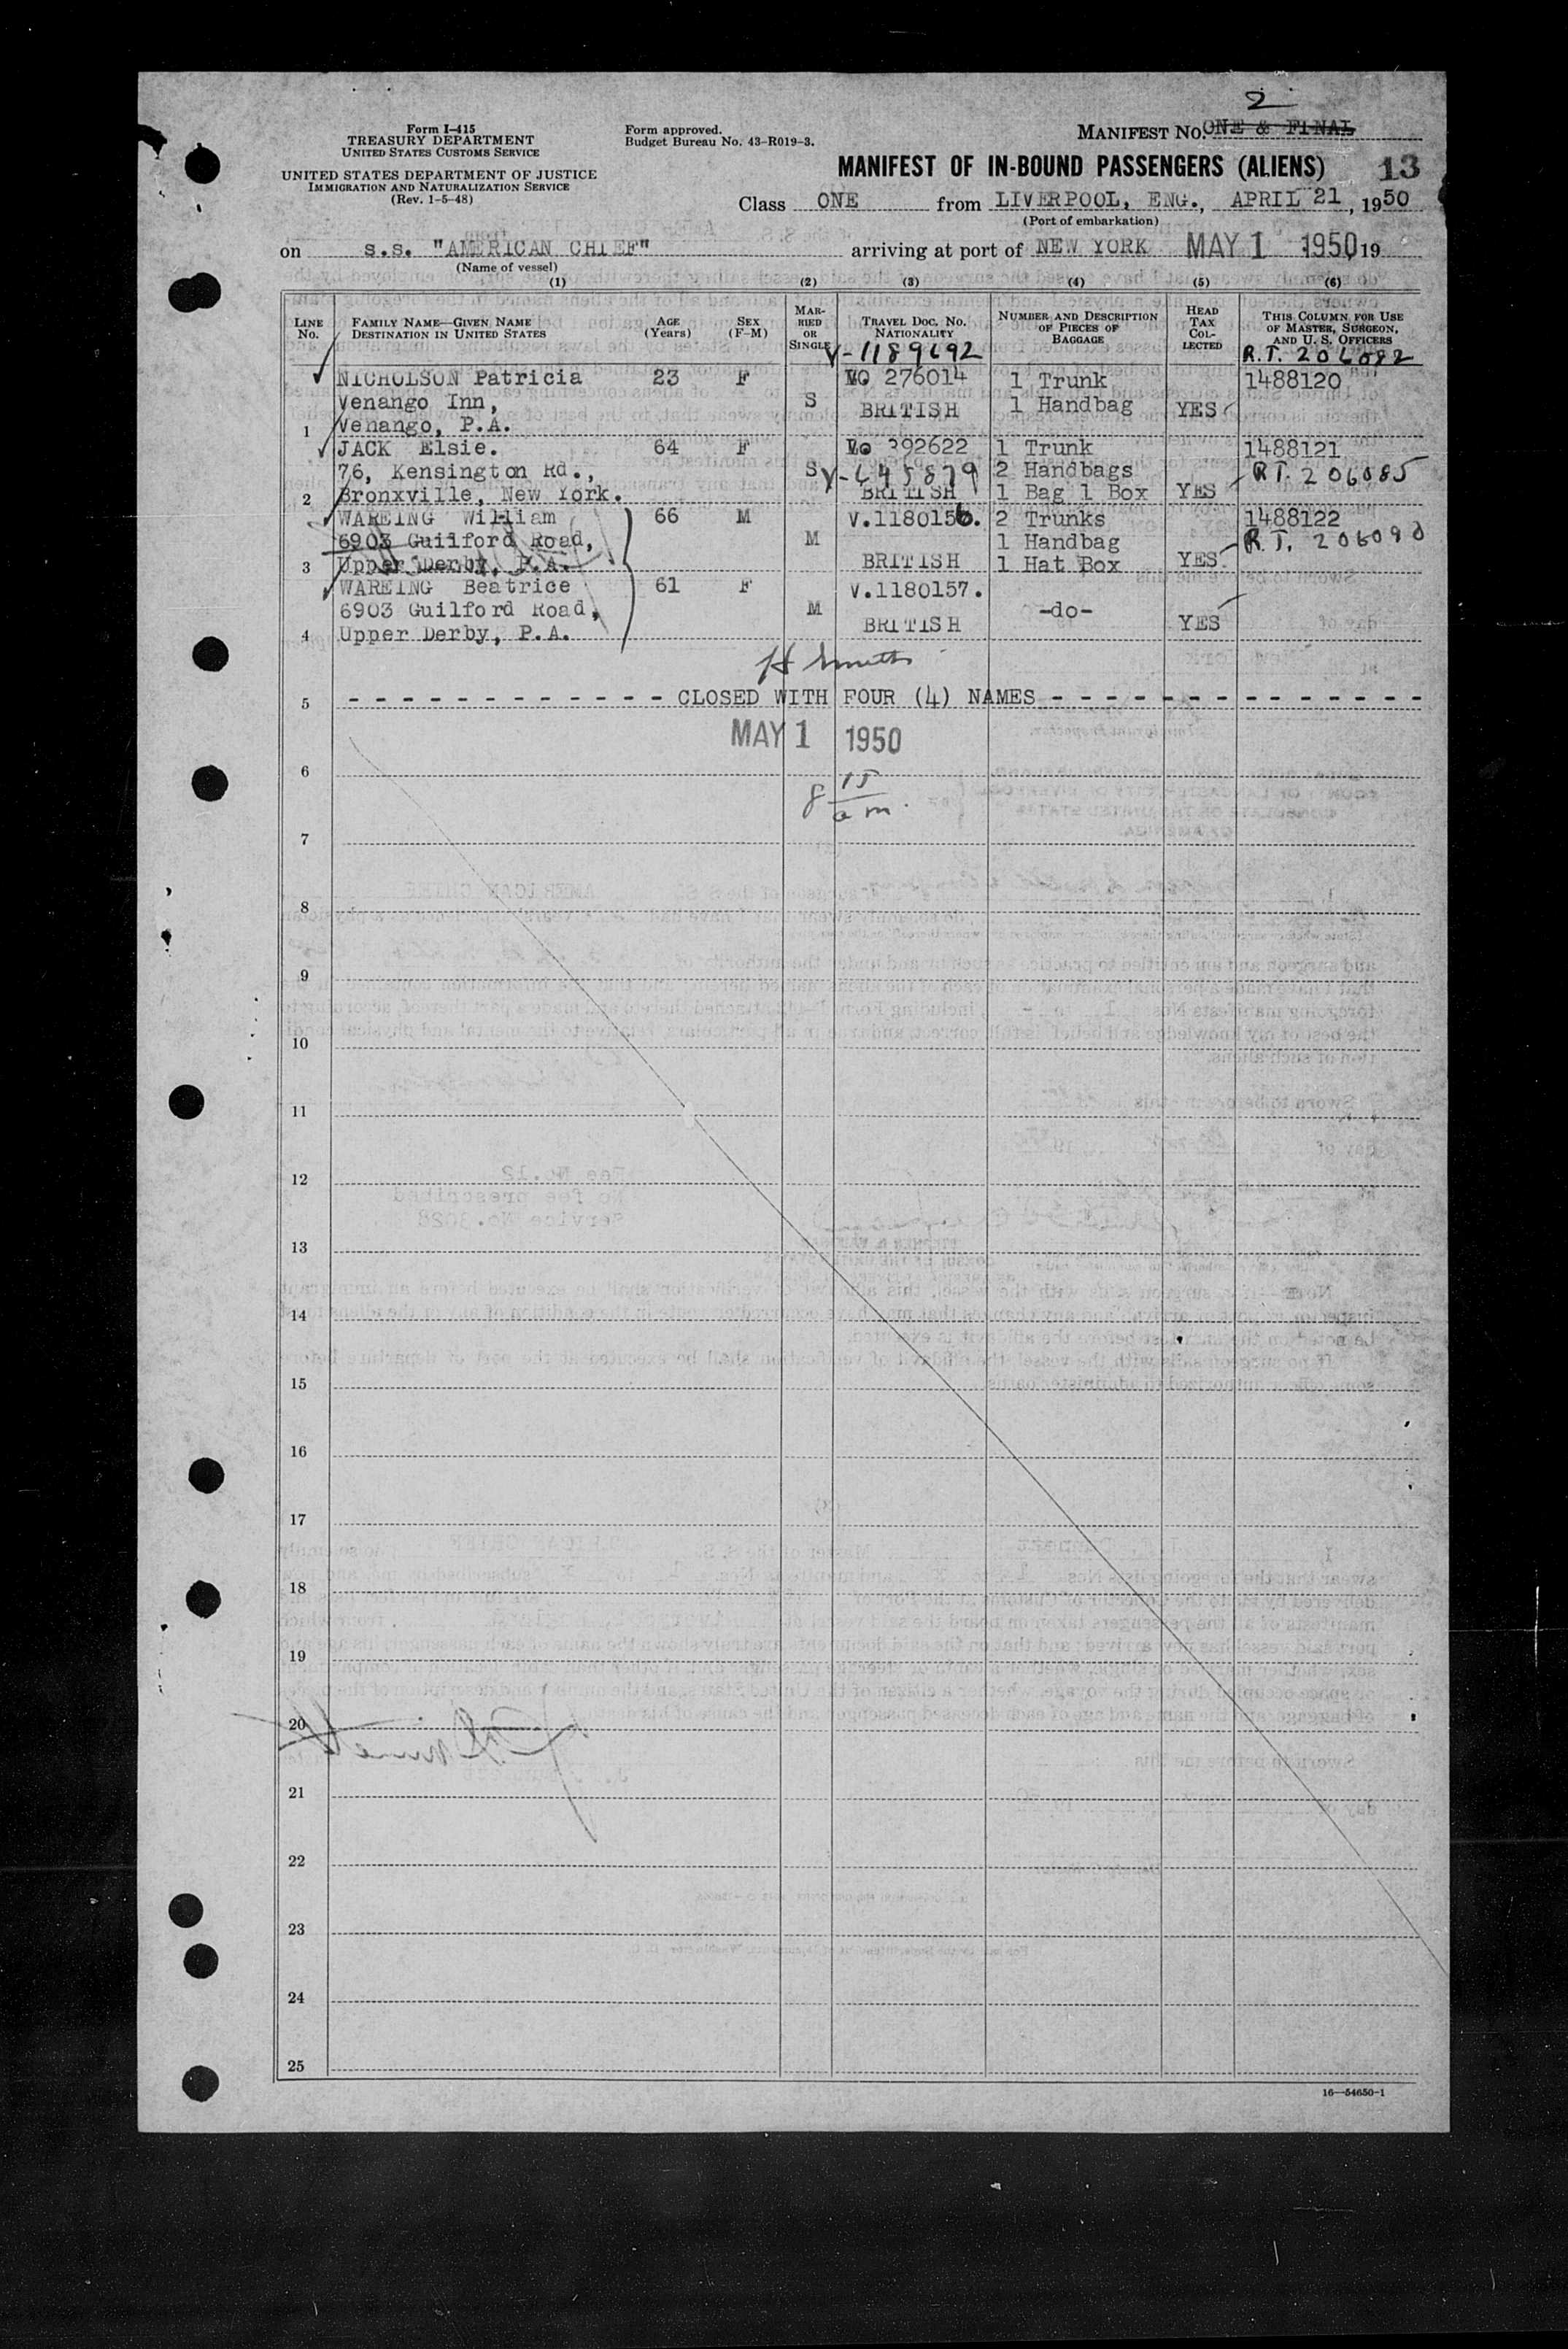 2
Form I-415
TREASURY DEPARTMENT
UNITED STATES CUSTOMS SERVICE
UNITED STATES DEPARTMENT OF JUSTICE
IMMIGRATION AND NATURALIZATION SERVICE
(Rev. 1-5-48)
Form approved.
Budget Bureau No. 43-R019-3.
MANIFEST NO. ONE & FINAL
MANIFEST OF IN-BOUND PASSENGERS (ALIENS) 13
Class ONE from LIVERPOOL, ENG., APRIL 21, 1950
(Port of embarkation)
on s.s. "AMERICAN CHIEF" arriving at port of NEW YORK MAY 1 1950 19
(Name of vessel)
(1) (2) (3) (4) (5) (6)
LINE NO.
FAMILY NAME—GIVEN NAME
DESTINATION IN UNITED STATES
AGE (Years)
SEX (F-M)
MARRIED OR SINGLE
TRAVEL DOC. NO.
NATIONALITY
NUMBER AND DESCRIPTION OF PIECES OF BAGGAGE
HEAD TAX COLLECTED
THIS COLUMN FOR USE OF MASTER, SURGEON, AND U. S. OFFICERS
V-1189692 R.T. 206082
NICHOLSON Patricia 23 F No 276014 1 Trunk 1488120
Venango Inn, S BRITISH 1 Handbag YES
1 Venango, P.A.
JACK Elsie. 64 F No 392622 1 Trunk 1488121
76, Kensington Rd., S V-645879 2 Handbags R.T. 206085
2 Bronxville, New York. BRITISH 1 Bag 1 Box YES
WAREING William 66 M V.1180156. 2 Trunks 1488122
6903 Guilford Road, M 1 Handbag R.T. 206090
3 Upper Derby, P.A. BRITISH 1 Hat Box YES
WAREING Beatrice 61 F V.1180157.
6903 Guilford Road, M -do-
4 Upper Derby, P.A. BRITISH YES
H Smith
5 - - - - - - - - - - - - - - CLOSED WITH FOUR (4) NAMES - - - - - - - - - - - - - - - -
MAY 1 1950
6
8 15 a m.
7
8
9
10
11
12
13
14
15
16
17
18
19
20
21
22
23
24
25
16—54650-1